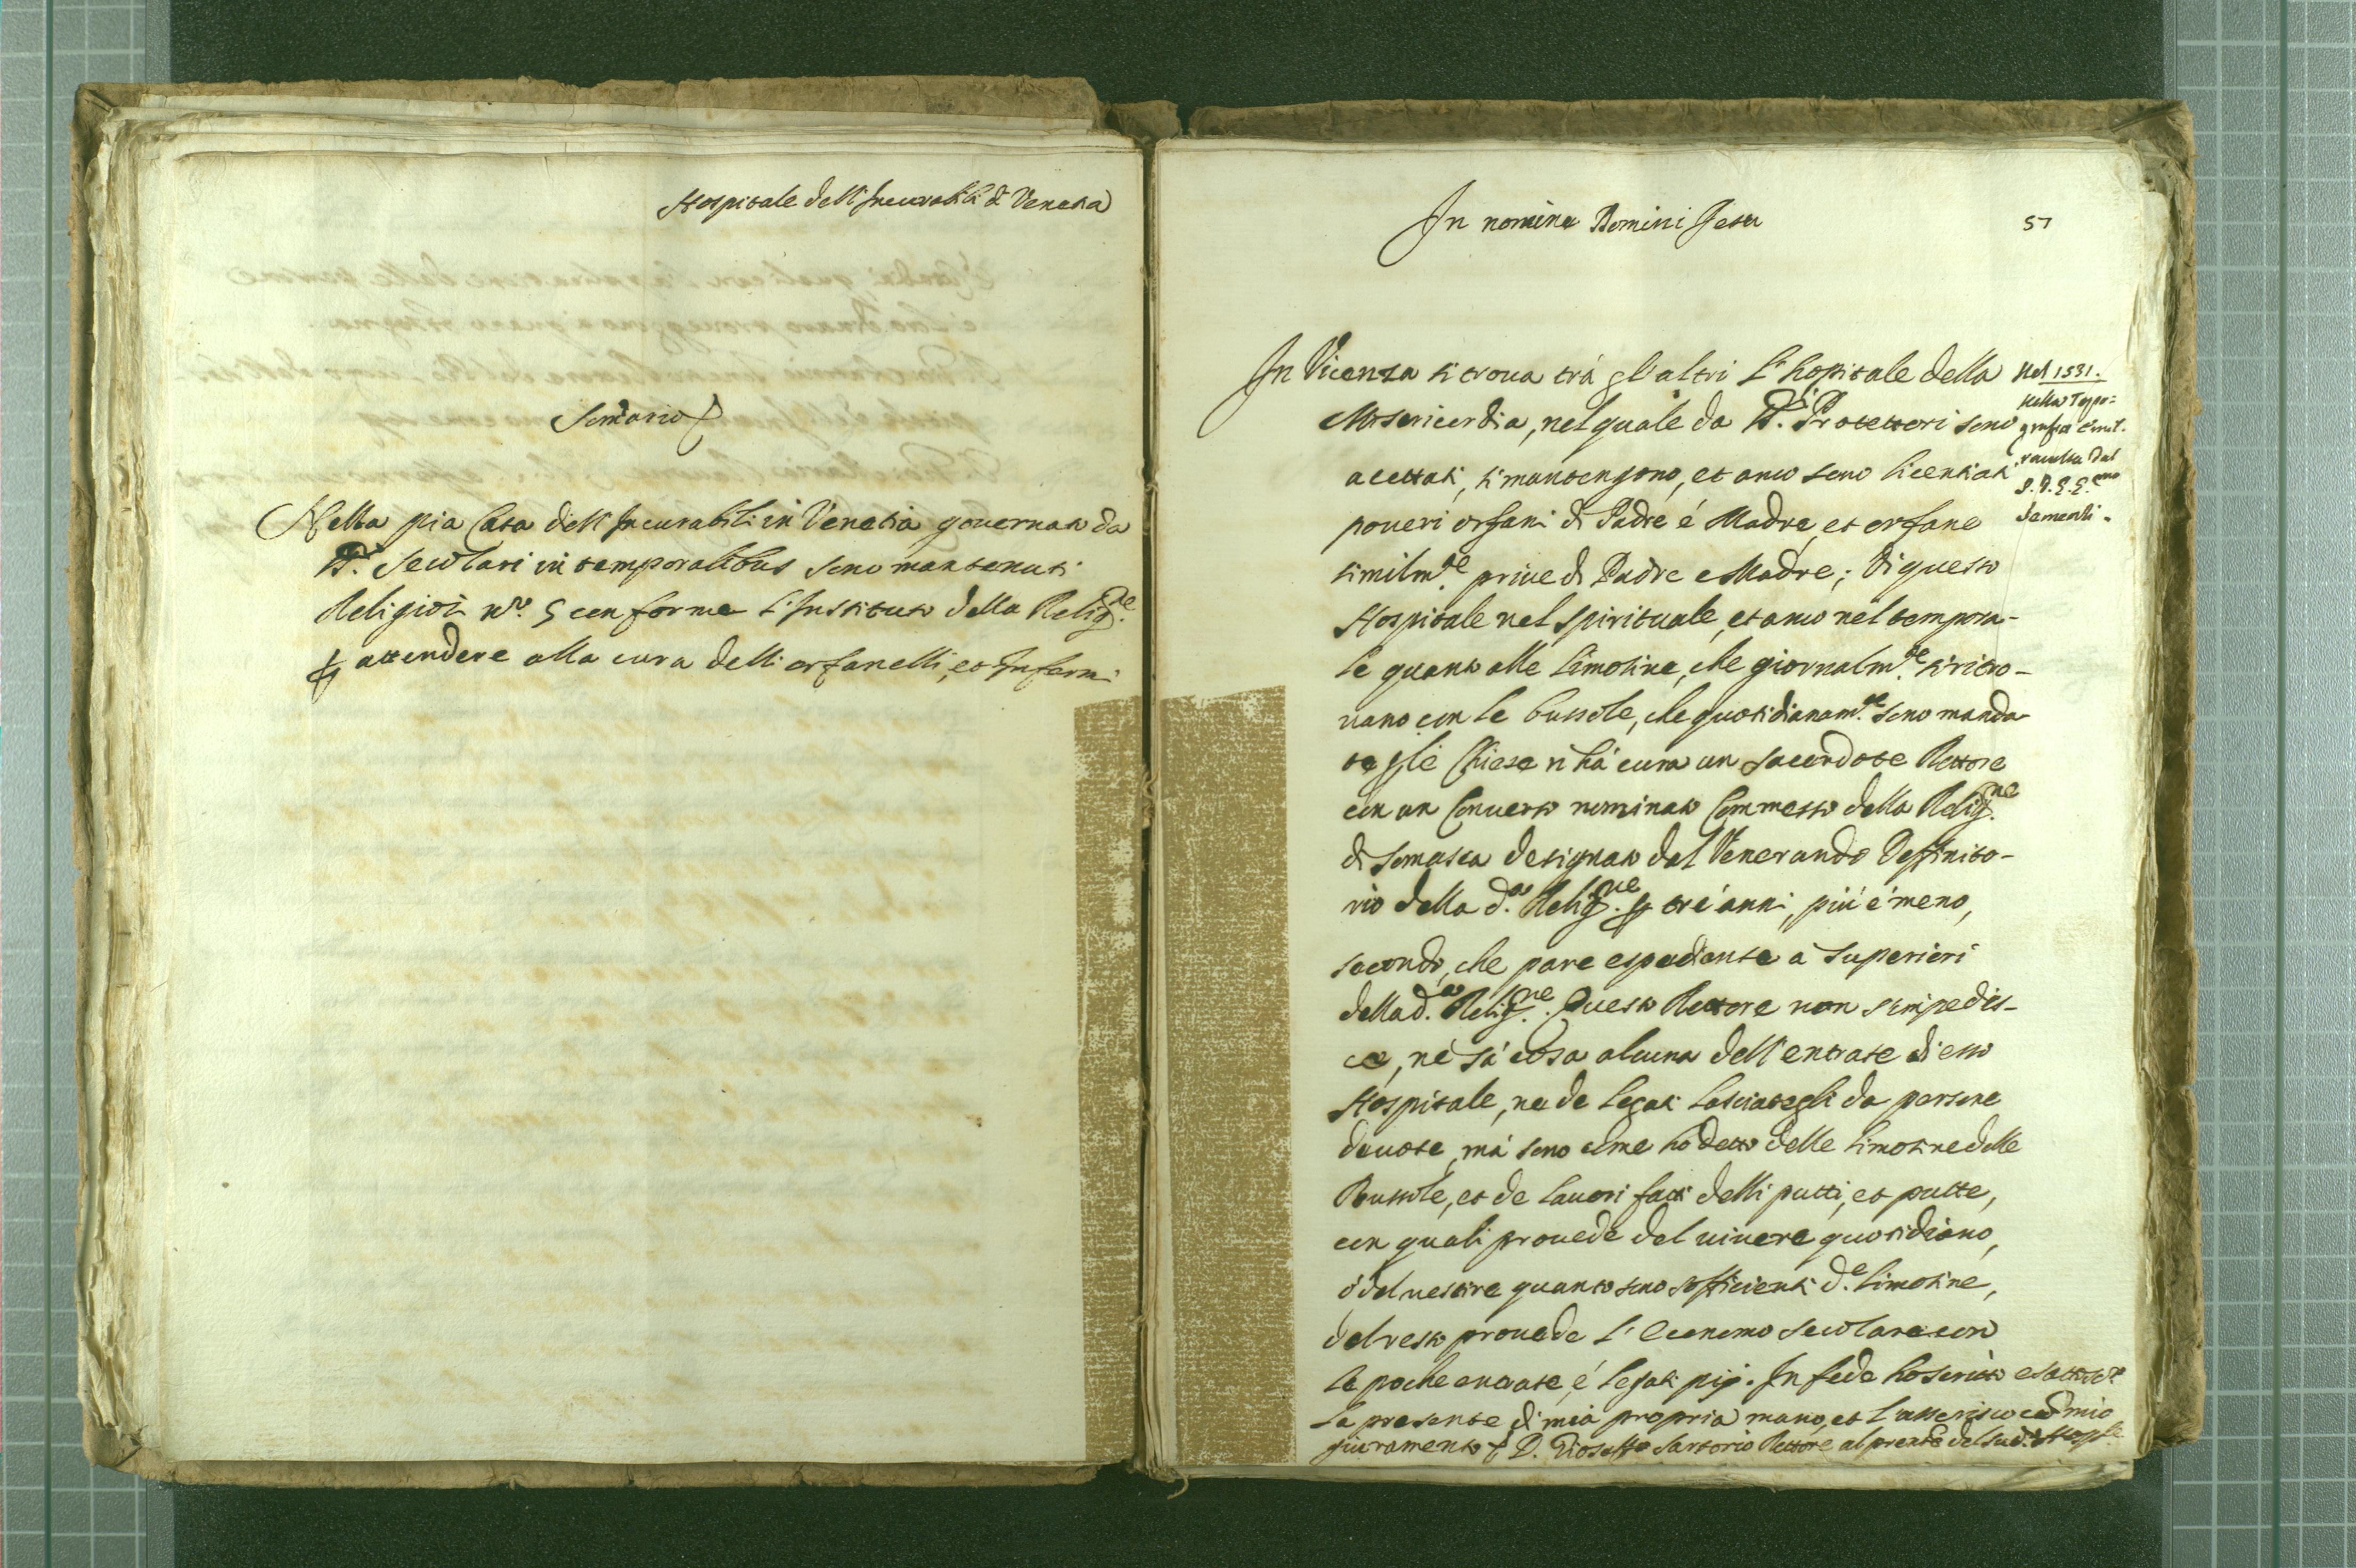 Hospitale dell'Incurabili di Venetia
Nella pia Casa dell'Incurabili in Venetia governata da
SS.ri Secolari in temporalibus sono mantenuti
Religiosi n.ro 5 conforme l'Instituto della Relig.ne
p attendere alla cura delli orfanelli, et Infermi
In nomine Domini Jesu
57
In Vicenza si troua trà gl'altri l'hospitale della
Misericordia, nel quale da SS.ri Protettori sono
acettati, si mantengono, et anco sono licentiati
poueri orfani di Padre é Madre, et orfane
similm.te priue di Padre e Madre; Di questo
Hospitale nel spirituale, et anco nel tempora-
le quanto alle limosine, che giornalm.te si ritro-
uano con le bussole, che quotidianam.te sono manda-
te p le Chiese n'hà cura un sacerdote Rettore
con un Conuerso nominato Commesso della Relig.ne
di Somasca designato dal Venerando Deffinito-
rio della d.a Relig.ne p tré anni, più é meno,
secondo, che pare espediente a superiori
della d.a Relig.ne. Questo Rettore non s'impedis-
ce, né sà cosa alcuna dell'entrate di esso
Hospitale, ne de legati lasciategli da persone
deuote, mà sono come ho detto delle limosine delle
Bussole, et de lauori fatti delli putti, et putte,
con quali prouede del uiuere quotidiano,
é del uestire quanto sono sofficienti d.e limosine,
del resto prouede l'Economo secolare con
le poche entrate, é legati pij. In fede ho scritto
la presente di mia propria mano, et l'asserisco col mio
giuramento D. Gioseffo Sartorio Rettore al pre.nte del sud.o Hosp.le
Nel 1531.
Nella Tipo=
grafia
raccolta dal